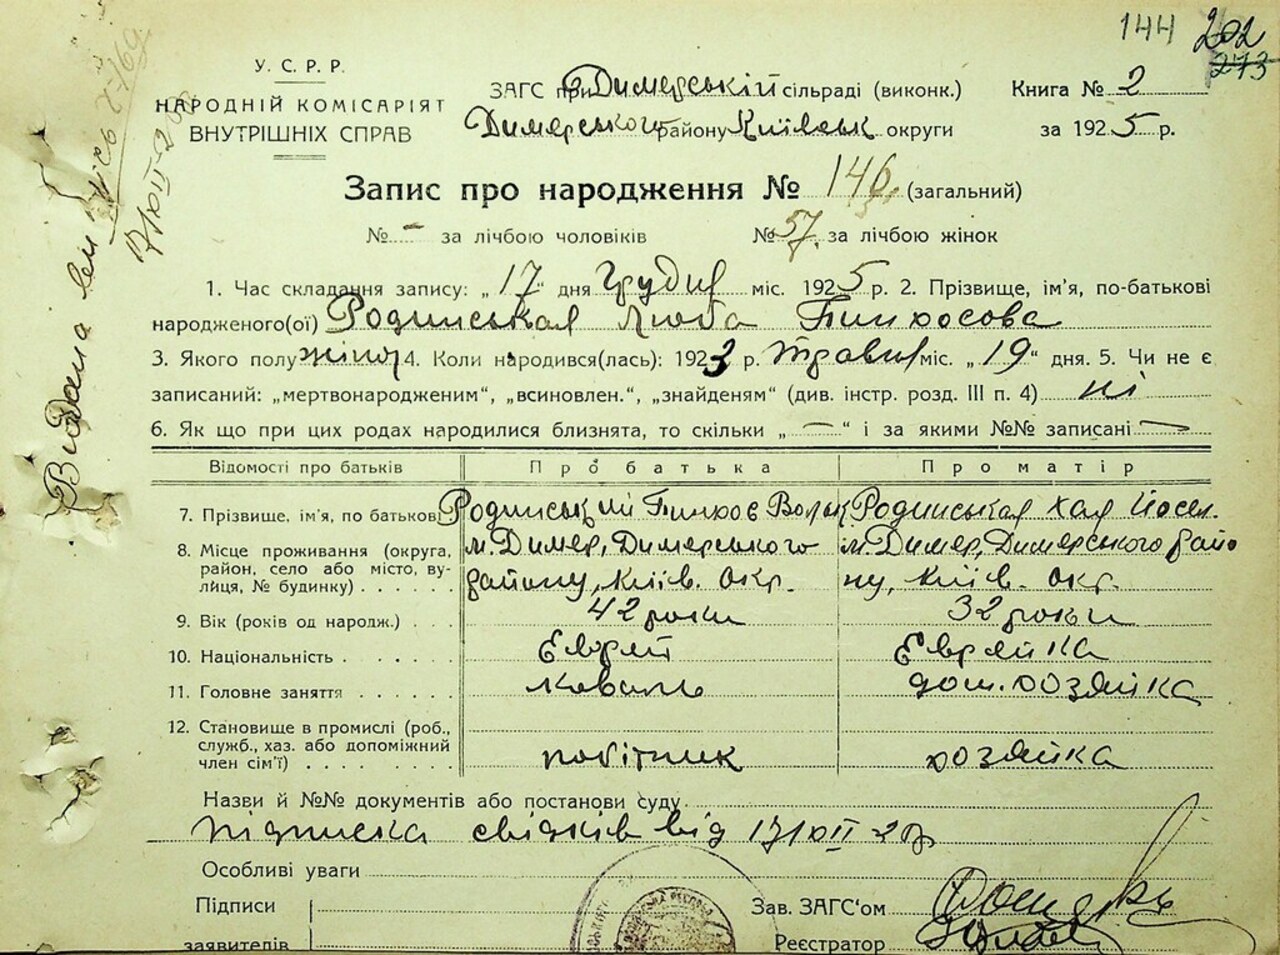 144 202
273
У. С. Р. Р.
НАРОДНІЙ КОМІСАРІЯТ
ВНУТРІШНІХ СПРАВ
ЗАГС при Димерській сільраді (виконк.) Книга № 2
Димерського району Київськ округи за 1925 р.
Запис про народження № 146 (загальний)
№ - за лічбою чоловіків № 57 за лічбою жінок
1. Час складання запису: „17" дня Грудня міс. 1925 р. 2. Прізвище, ім'я, по-батькові
народженого(ої) Родинськая Люба Пинхосова
3. Якого полу жіноч 4. Коли народився(лась): 1923 р. травня міс. „19" дня. 5. Чи не є
записаний: „мертвонародженим", „всиновлен.", „знайденям" (див. інстр. розд. III п. 4) ні
6. Як що при цих родах народилися близнята, то скільки „—" і за якими №№ записані —
Відомості про батьків Про батька Про матір
7. Прізвище, ім'я, по батькові Родинський Пинхос Вольк Родинськая Хая Йосел.
8. Місце проживання (округа, м. Димер, Димерського м. Димер, Димерського райо
район, село або місто, вулиця, № будинку) району, Київ. окр. ну, Київ. окр.
9. Вік (років од народж.) 42 роки 32 роки
10. Національність Єврей Єврейка
11. Головне заняття коваль дом. хозяйка
12. Становище в промислі (роб.,
служб., хаз. або допоміжний
член сім'ї) робітник хозяйка
Назви й №№ документів або постанови суду
підписка свідків від 17/XII-25р.
Особливі уваги
Підписи Зав. ЗАГС'ом
заявителів Реєстратор
Видана